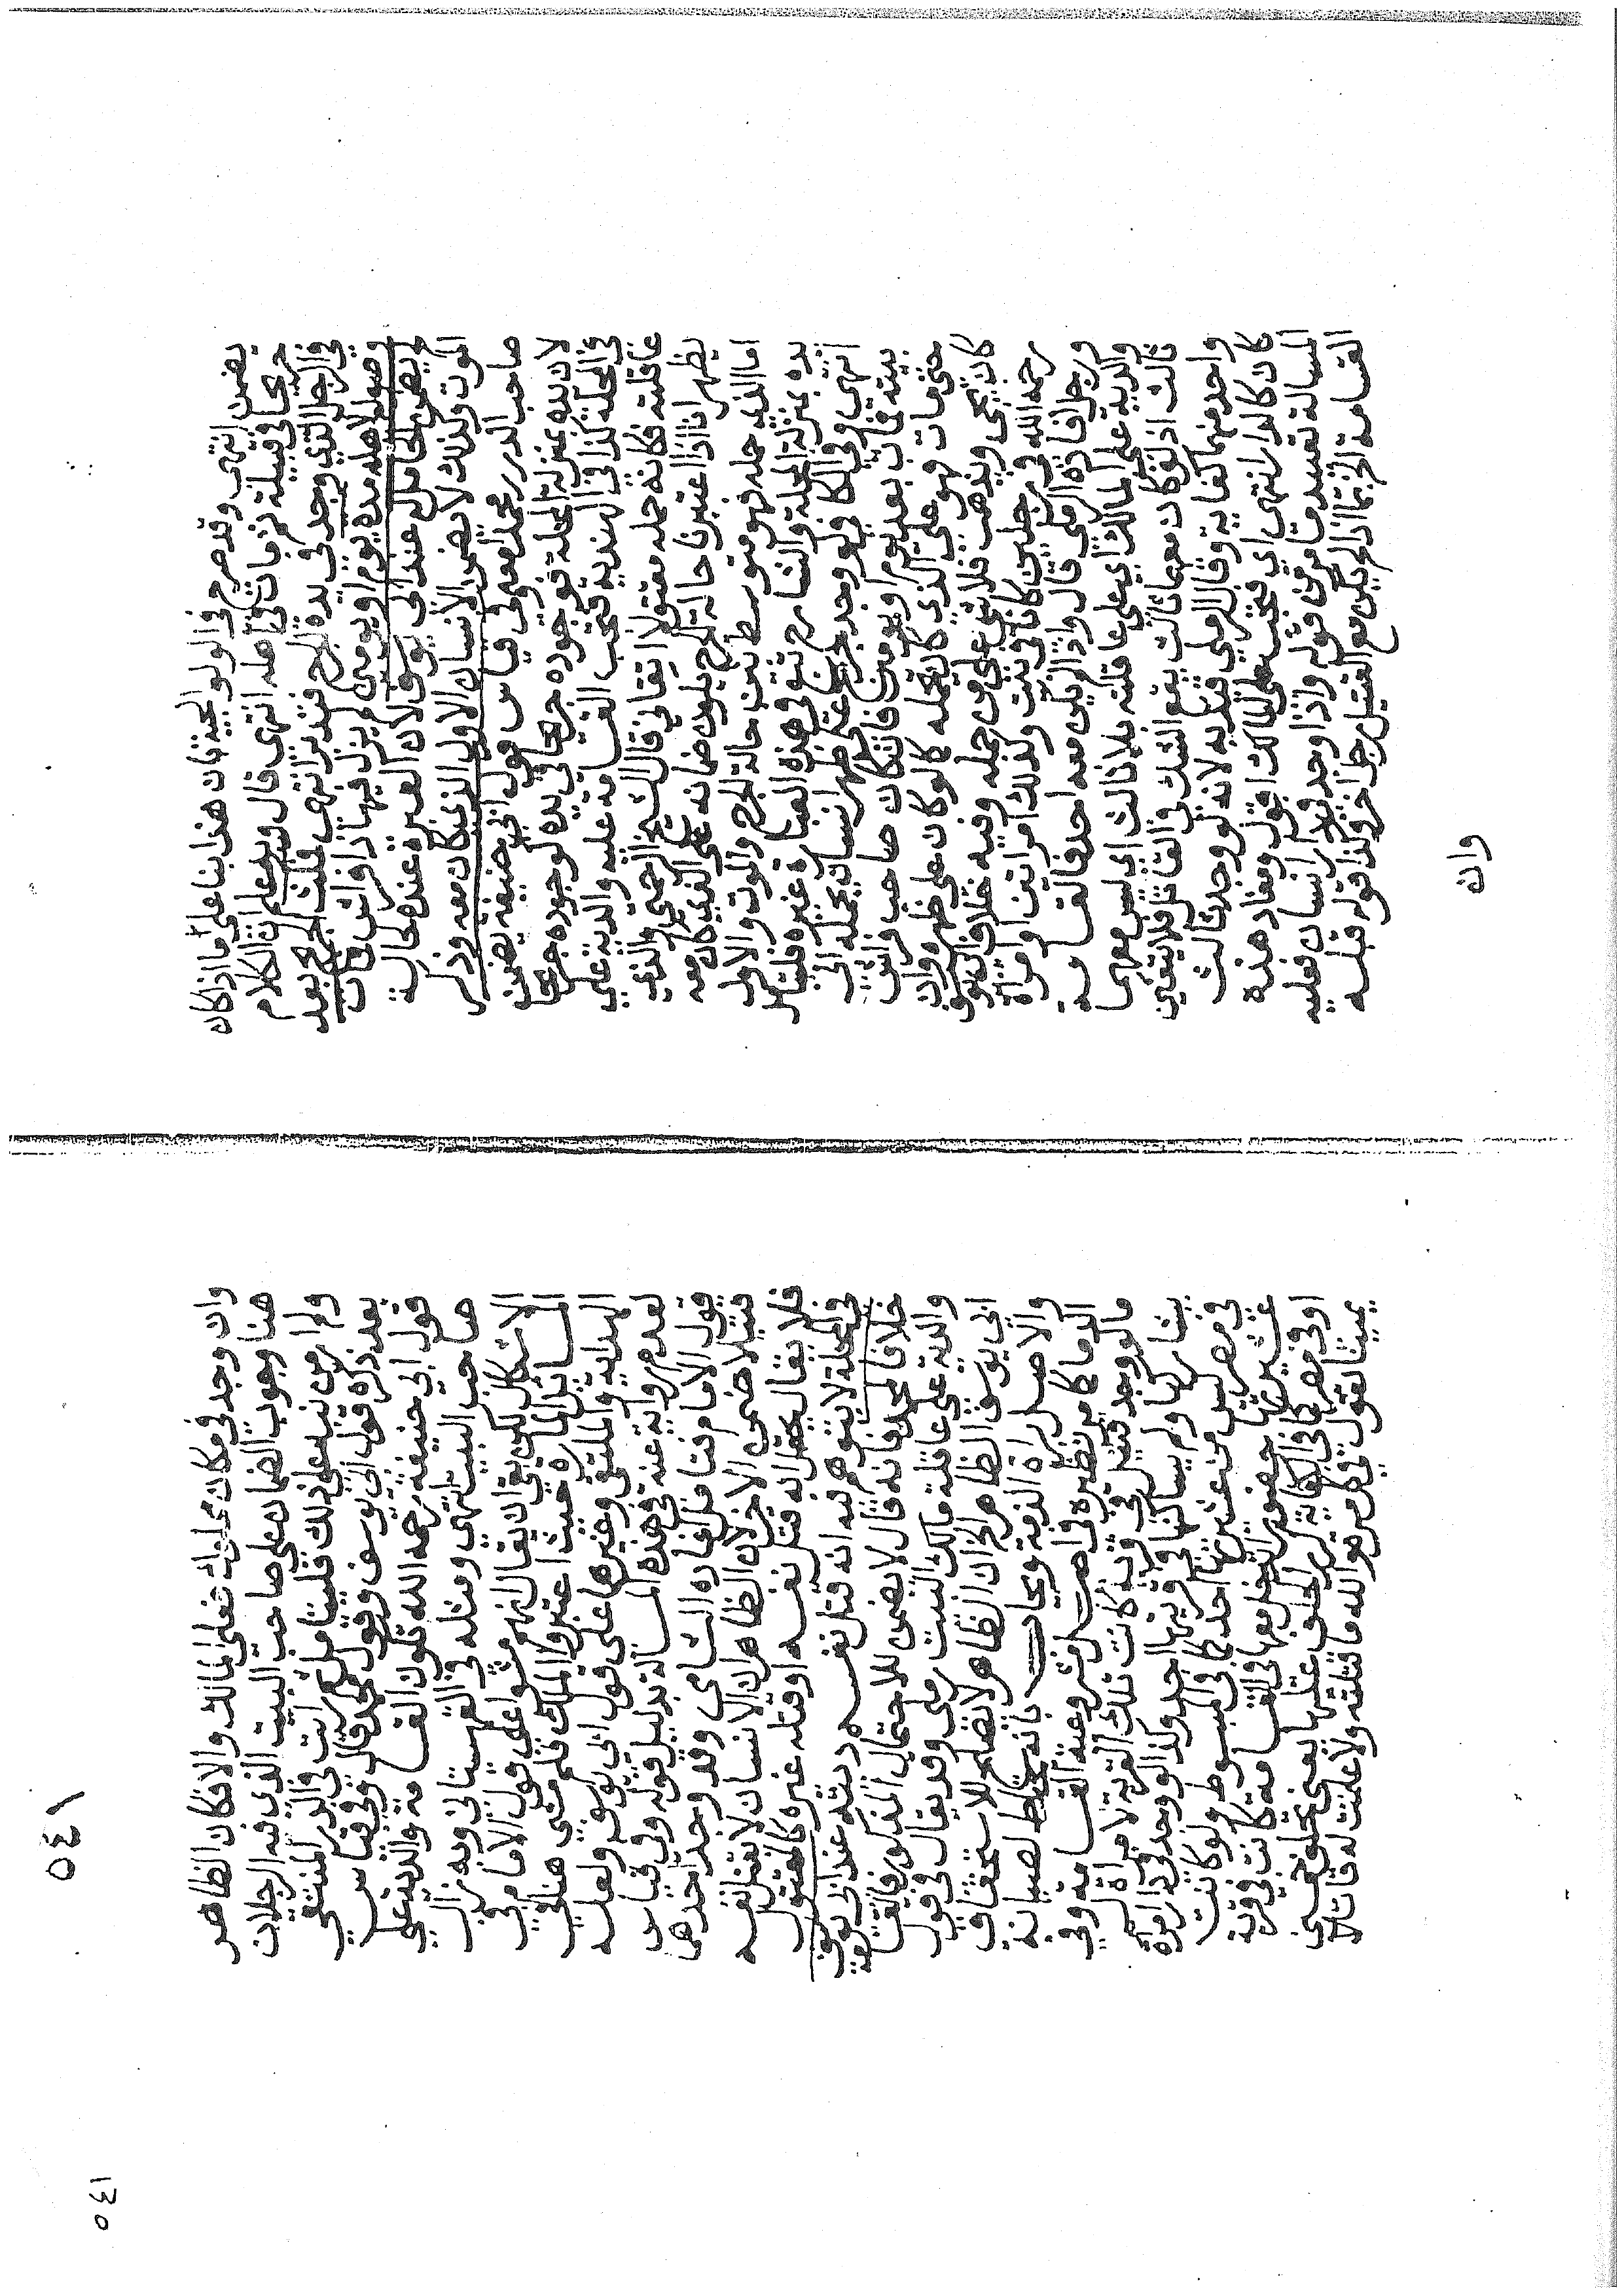 يضمن انتهى وقد صرح في الولوالجية بان هذا بنا على ما اذا كان
جريحا في قبيلة ثم مات في اهله انتهى قال وبه علم ان الكلام
في الرجل الذي وجد في يده الجرح فتدبر انتهى قلت الجمع بعد
وصوله لاهله مدة يوم او يومين لم يزل فيها ذا فراش فمات
لم يضمن الحامل عند ابي يوسف لان العبرة عنده لحالة
الموت ولذلك لا يضمن الانسان الاول الذي كان معه وذكر
صاحب الدرر محمدا معه وفي قياس قول ابي حنيفة يضمن
لان يده بمنزلة المحلة فوجوده جريحا في يده كوجوده جريحا
في المحلة كذا في الهندية فتجب القسامة عليه والدية على
عاقلته فكانه حمله مقتولا اتقاني قال الشيخ الرحمتي والذي
يظهر انا اذا اعتبرنا حالة الجرح يكون ضمانه على الذي كان معه
اما الذي حمله فهو متوسط بين حالة الجرح والموت والاول
يده بمنزلة المحلة والشارح تبع في هذه العبارة غيره فليتامل
انتهى وفي الكافي لو وجد جريح على ظهر انسان يحمله الى
بيته فمات بعد يوم او يومين فان كان صاحب فراش
حتى مات فهو على الذي كان يحمله كما لو كان على ظهره وان
كان يجي ويذهب فلا شي على من حمله وفيه خلاف ابي يوسف
رحمه الله في رجلين كانا في بيت وكذلك امراتين او امراة
ورجل افاده الرملي قال واذا لم يكن معه احد فالقسامة
والدية على المالك اي على عاقلته بلا ثالث اي ليس معهما
ثالث اذ لو كان معهما ثالث يقع الشك في القاتل فلا يتعين
واحد منهما كفاية وقال الرملي قيد به لانه لو وجد ثالث
كان كالدار انتهى اي فتجب على المالك اقول ومفاد هذه
المسالة تقييد ما مر من قوله واذا وجد في دار انسان فعليه
القسامة الخ بما اذا لم يكن مع القتيل رجل اخر وكذا قوله قبله
وان
٥٤١
وان وجد في مكان مملوك فعلى المالك والا فكان الظاهر
هنا وجوب الضمان على صاحب البيت الذي فيه الرجلان
ولم ار من نبه على ذلك فليتامل ثم رايت في الدر المنتقى
بعد ذكره قول ابي يوسف وقول محمد قال وفي قياس
قول ابي حنيفة رحمه الله تكون القسامة والدية على
صاحب البيت انتهى ومثله في القهستاني وبه يزال
الاشكال لكن بقي ان يقال انهم مشوا على قول الامام في
المسائل المارة حيث اعتبروا الملك فلم مشى هنا في
الهداية والملتقى وغيرهما على قول ابي يوسف ولعله
لعدم رواية عنه في هذه المسالة بدليل قوله وفي قياس
قول الامام فتامل افاده الشامي وقد وجد احدهما
قتيلا ضمن الاخر لان الظاهر ان الانسان لا يقتل نفسه
فلا يقال يحتمل انه قتل نفسه او قتله غيره كالمقتول
في محلة لا يتوهم فيه انه قتل نفسه ديته عند ابي يوسف
خلافا لمحمد فانه قال لا يضمن للاحتمال المذكور فالقسامة
والدية على عاقلة مالك البيت رملي وقد يقال في قول
ابي يوسف الظاهر الخ ان الظاهر لا يصلح للاستحقاق
والاصل براة الذمة ويجاب بانه يحتاط لصيانة
الدما كما مر نظيره في اصل مشروعية القسامة وفي
ما لو وجد قتيل في قرية كانت تلك القرية لامراة لم
يشاركها ولم يساكنها في قريتها احد وكذا لو وجد في دار امرة
في مصر ليس من عشيرتها احد كما في المبسوط ولو كانت
عشيرتها حضورا تدخل معها في القسامة كانت في قرية
او في مصر كما في الكفاية كرر الحلف عليها يعني تحلف خمسين
يمينا تقول في كل مرة هو الله ما قتلته ولا علمت له قاتلا
٥٤١